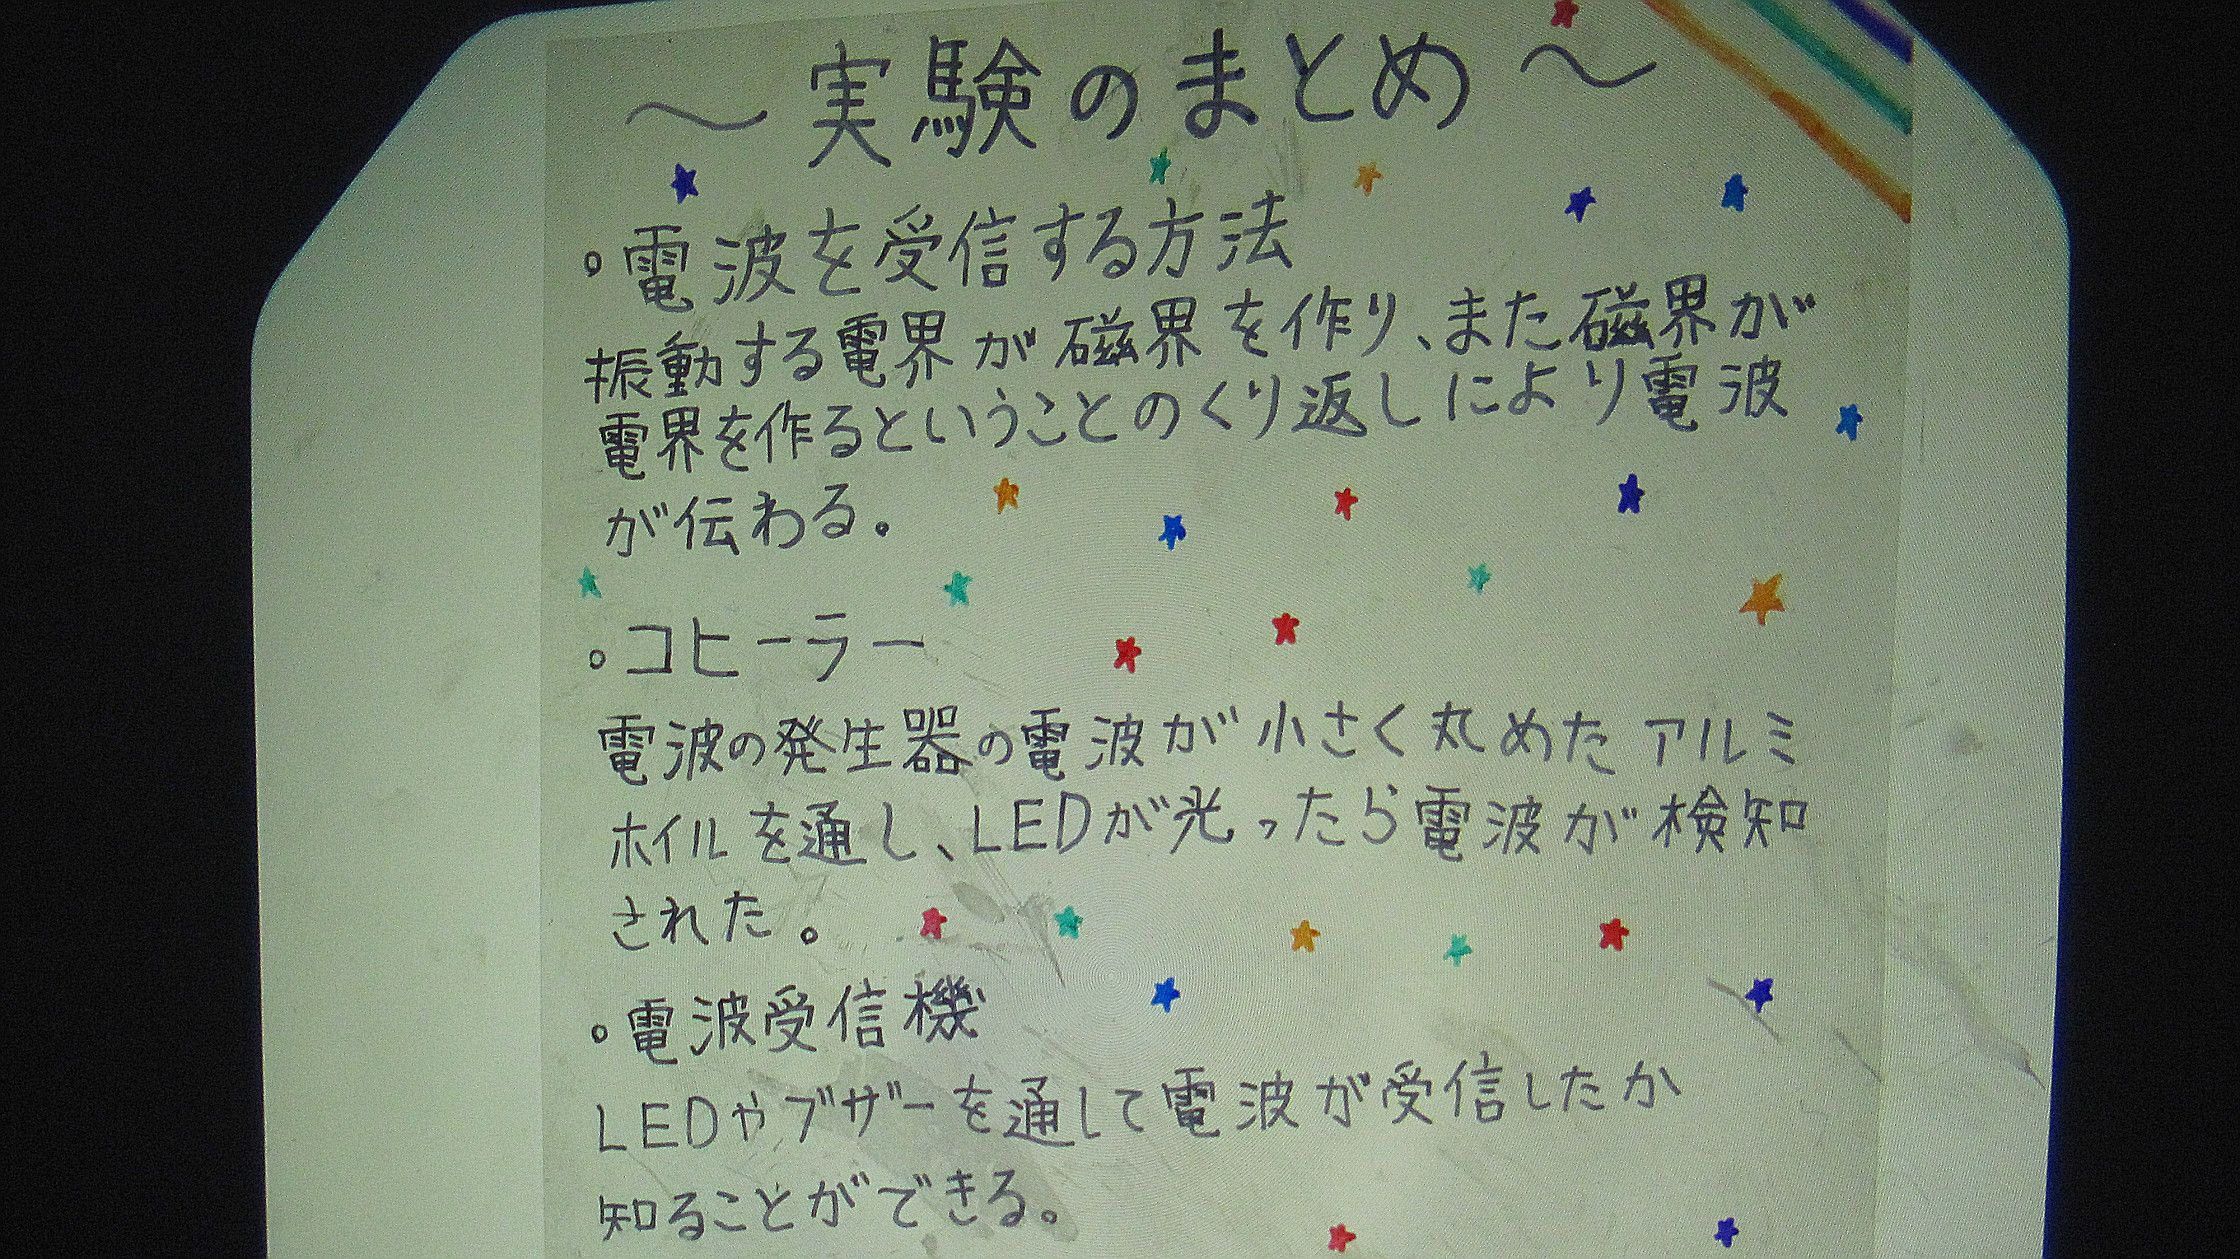 ～実験のまとめ～
。電波を受信する方法
振動する電界が磁界を作り、また磁界が
電界を作るということのくり返しにより電波
が伝わる。
。コヒーラー
電波の発生器の電波が小さく丸めたアルミ
ホイルを通し、LEDが光ったら電波が検知
された。
。電波受信機
LEDやブザーを通して電波が受信したか
知ることができる。